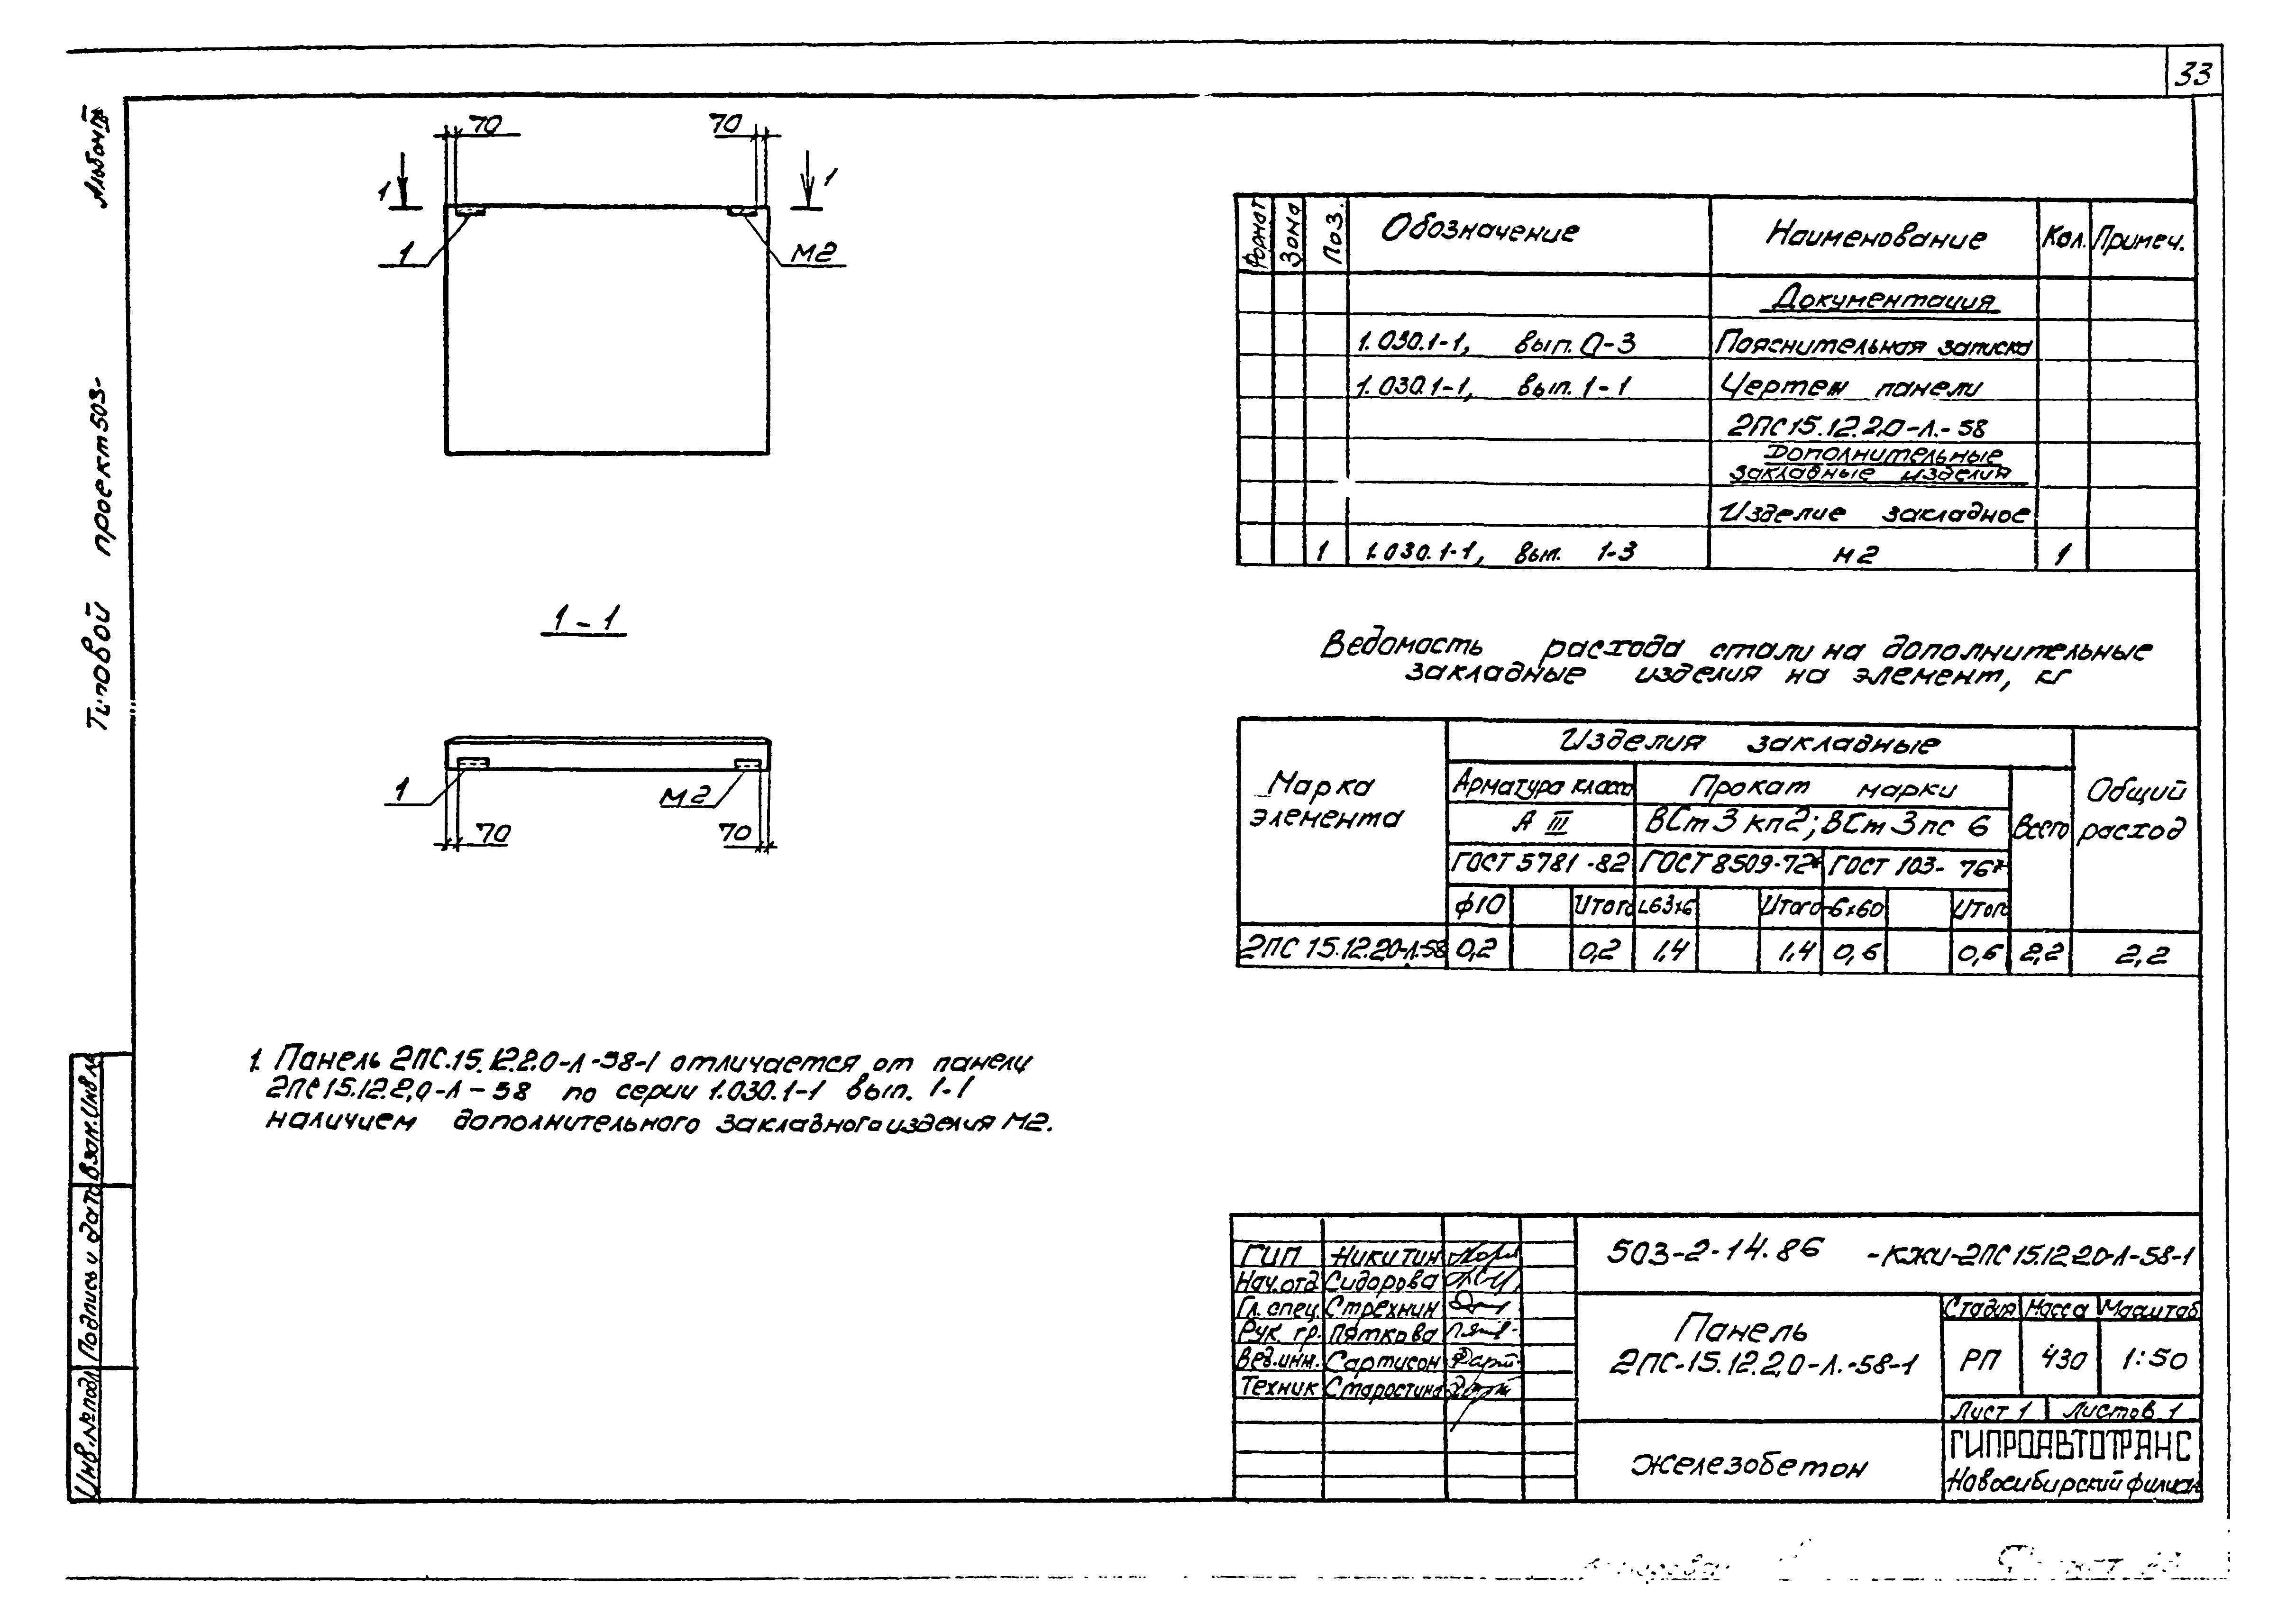 33
Альбом
Типовой проект 503-
70 70
1 1
1 М2
1-1
1 М2
70 70
Формат Зона Поз. Обозначение Наименование Кол. Примеч.
Документация
1.030.1-1, вып. 0-3 Пояснительная записка
1.030.1-1, вып. 1-1 Чертеж панели
2ПС15.12.2,0-Л.-58
Дополнительные
закладные изделия
Изделие закладное
1 1.030.1-1, вып. 1-3 М2 1
Ведомость расхода стали на дополнительные
закладные изделия на элемент, кг
Марка элемента Изделия закладные Общий расход
Арматура класса Прокат марки Всего
А III ВСт3кп2; ВСт3пс6
ГОСТ 5781-82 ГОСТ 8509-72* ГОСТ 103-76*
ф10 Итого L63х6 Итого -6х60 Итого
2ПС 15.12.2,0-Л.-58 0,2 0,2 1,4 1,4 0,6 0,6 2,2 2,2
1. Панель 2ПС.15.12.2.0-Л-58-1 отличается от панели
2ПС15.12.2,0-Л-58 по серии 1.030.1-1 вып. 1-1
наличием дополнительного закладного изделия М2.
Инв.№подл Подпись и дата Взам.инв.№
ГИП Никитин
Нач.отд. Сидорова
Гл. спец. Стрехнин
Рук. гр. Пяткова
Вед.инж. Сартисон
Техник Старостина
503-2-14.86 -КЖИ-2ПС15.12.2.0-Л-58-1
Панель
2ПС-15.12.2,0-Л.-58-1
Стадия Масса Масштаб
РП 430 1:50
Лист 1 Листов 1
Железобетон
ГИПРОАВТОТРАНС
Новосибирский филиал